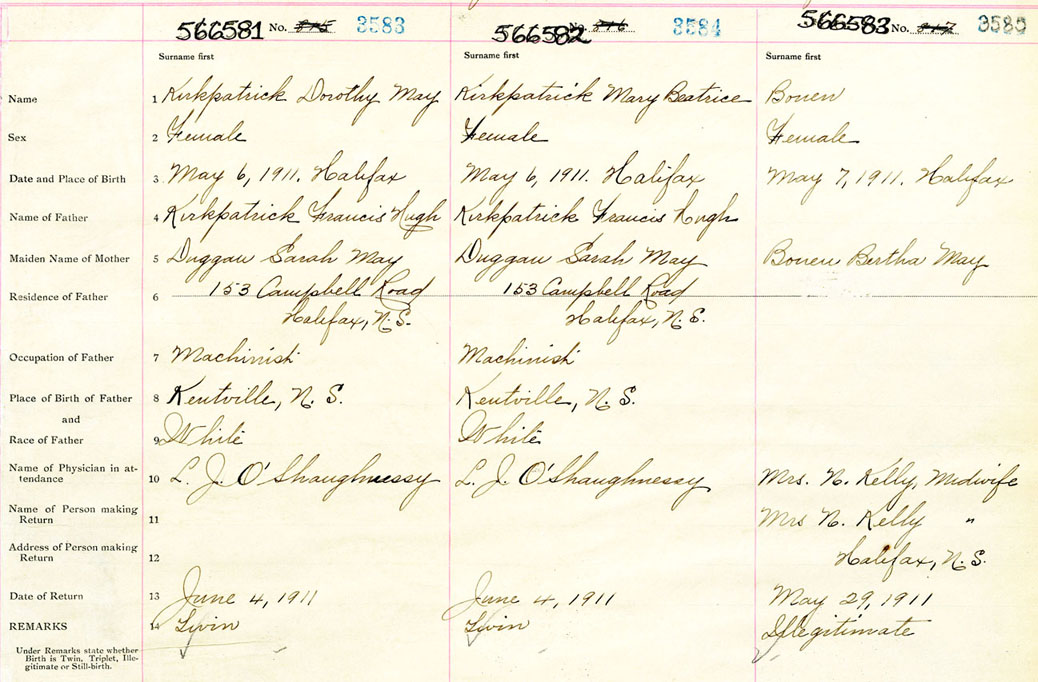 566581 No. 3583 566582 No. 3584 566583 No. 3585
Surname first Surname first Surname first
Name 1 Kirkpatrick Dorothy May Kirkpatrick Mary Beatrice Bowen
Sex 2 Female Female Female
Date and Place of Birth 3 May 6, 1911. Halifax May 6, 1911. Halifax May 7, 1911. Halifax
Name of Father 4 Kirkpatrick Francis Hugh Kirkpatrick Francis Hugh
Maiden Name of Mother 5 Duggan Sarah May Duggan Sarah May Bowen Bertha May
Residence of Father 6 153 Campbell Road 153 Campbell Road
Halifax, N.S. Halifax, N.S.
Occupation of Father 7 Machinist Machinist
Place of Birth of Father 8 Kentville, N.S. Kentville, N.S.
and
Race of Father 9 White White
Name of Physician in at-
tendance 10 L. J. O'Shaughnessy L. J. O'Shaughnessy Mrs. N. Kelly, Midwife
Name of Person making
Return 11 Mrs N. Kelly "
Address of Person making
Return 12 Halifax, N.S.
Date of Return 13 June 4, 1911 June 4, 1911 May 29, 1911
REMARKS 14 Twin Twin Illegitimate
Under Remarks state whether
Birth is Twin, Triplet, Ille-
gitimate or Still-birth.